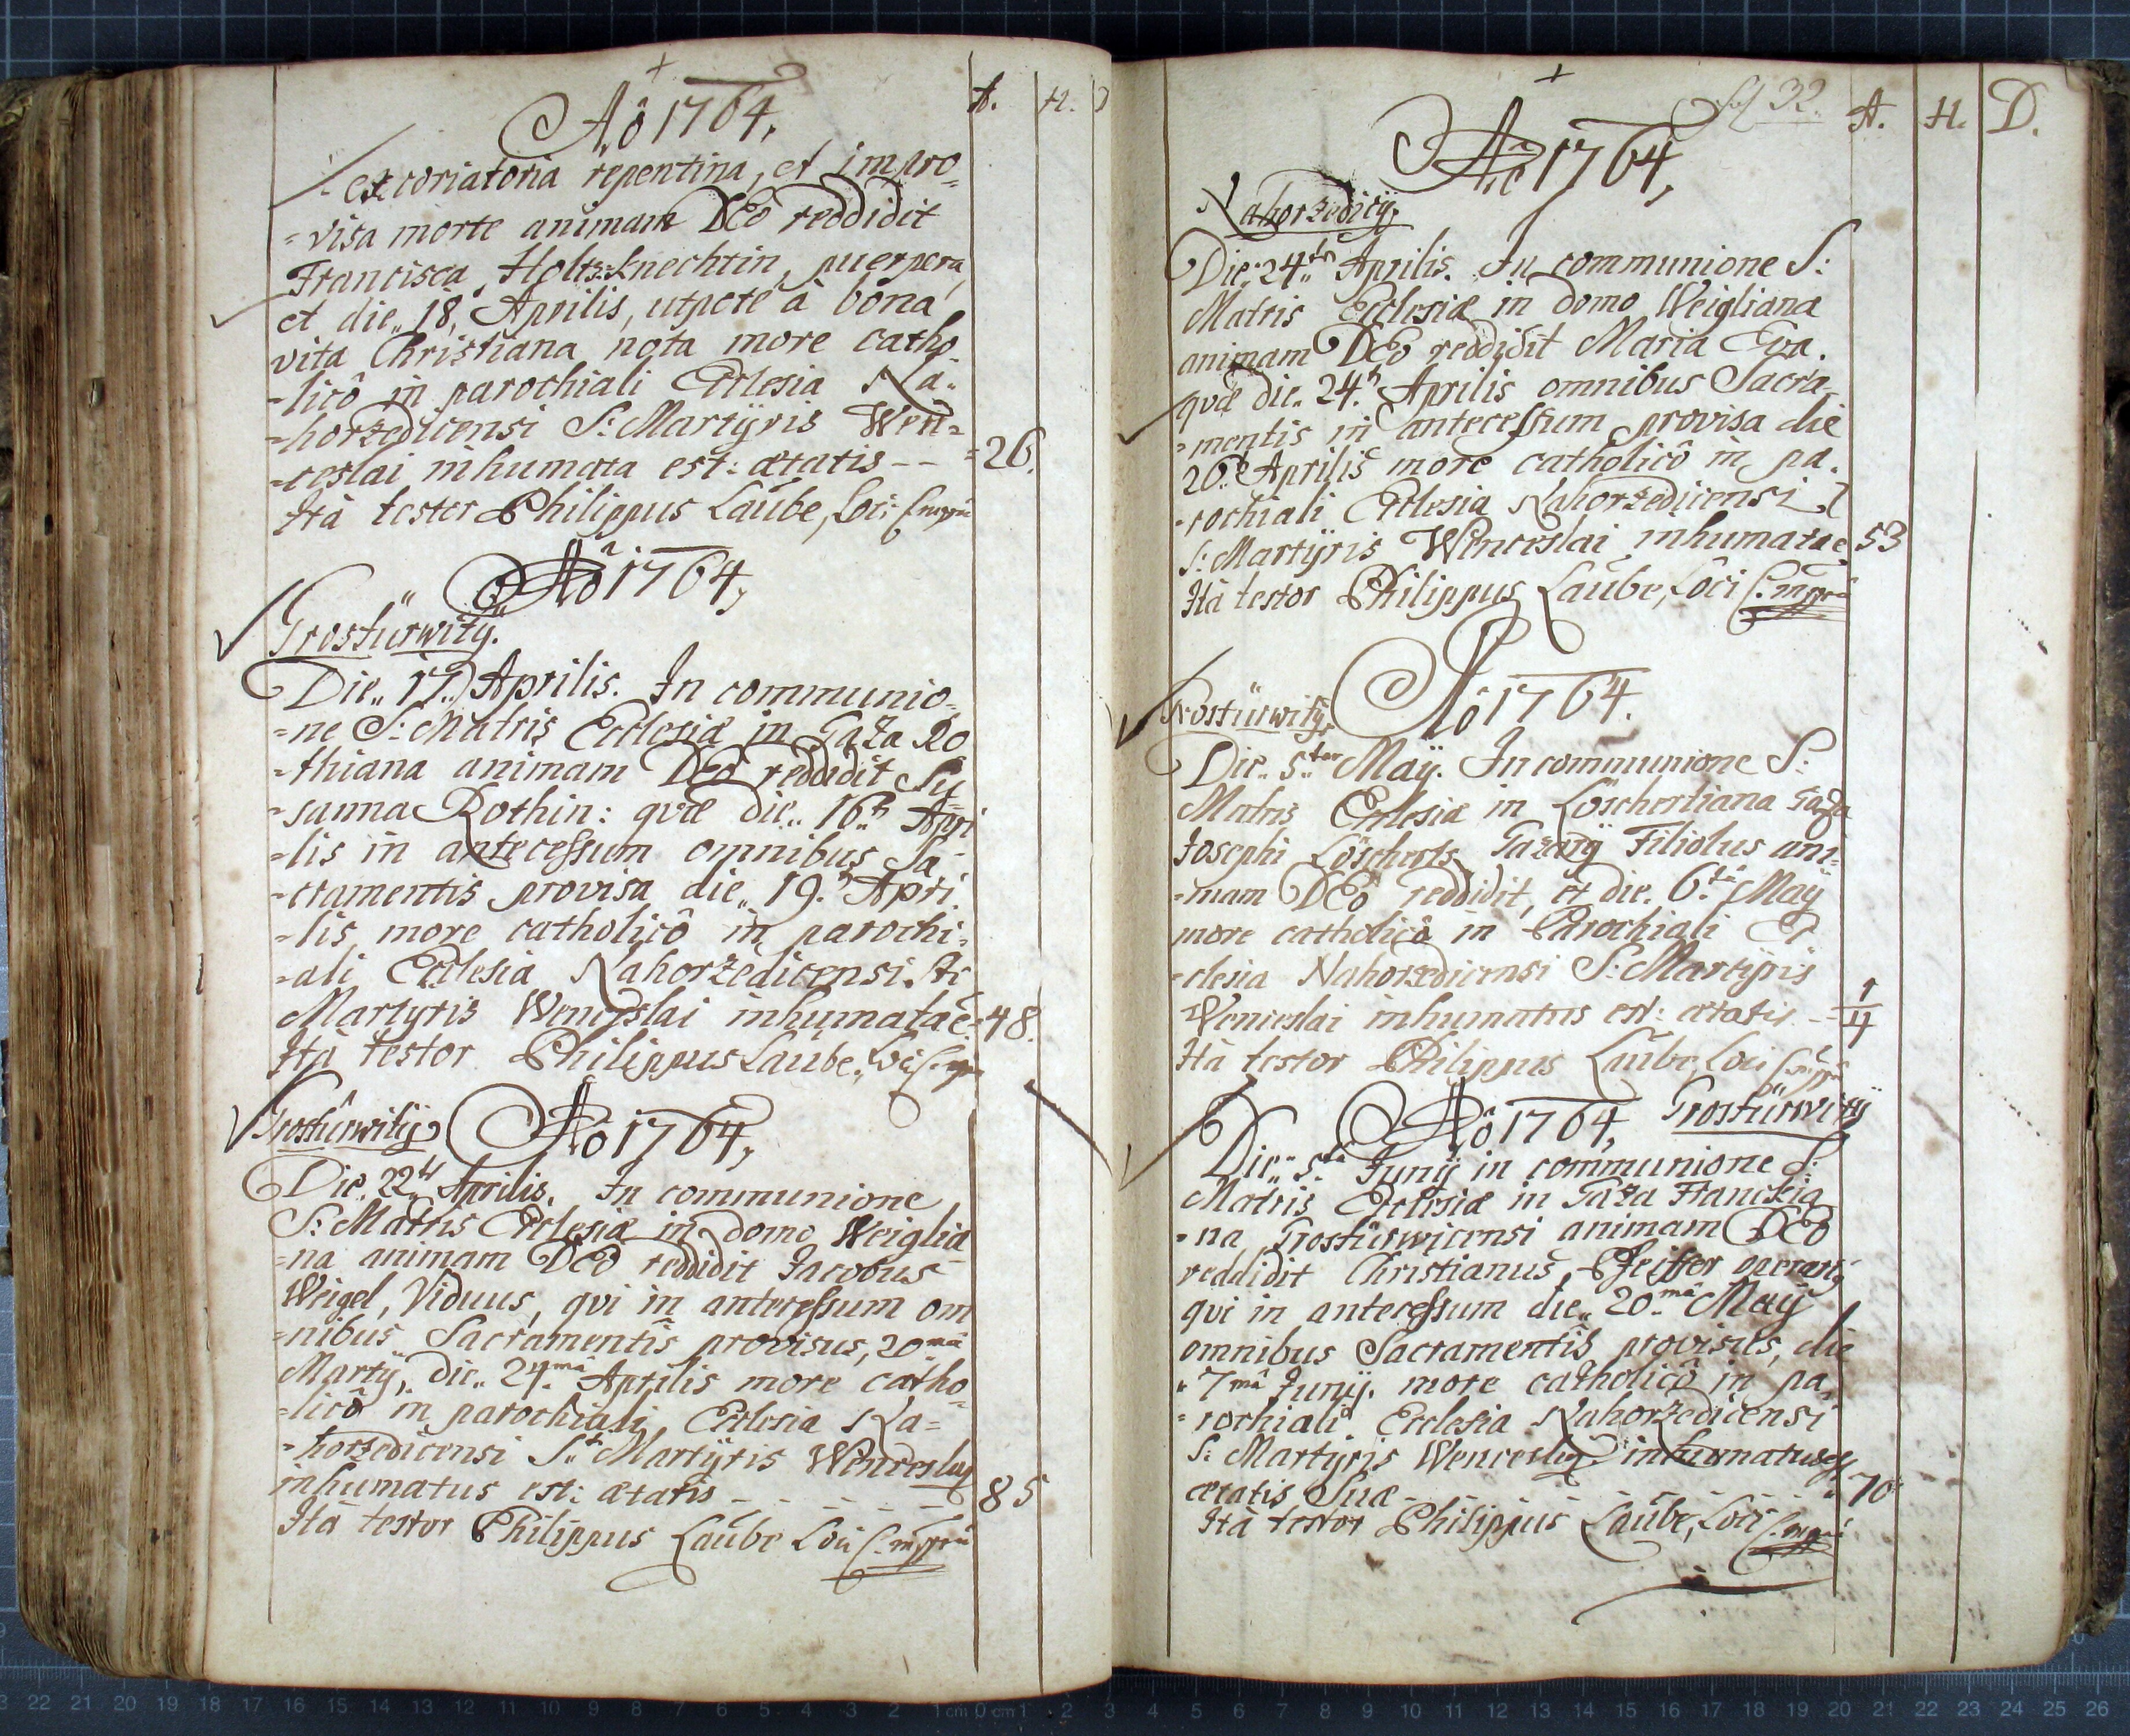 Aô 1764,
A. H. D
excoriatoria repentina, et impro=
=visa morte animam DEo reddidit
Francisca, Holtz=Knechtin, puerpera,
et die„ 18, Aprilis, utpote à bona
vita Christiana nota more catho=
=licô in parochiali Ecclesia Na=
=horzedicensi S: Martÿris Wen=
=ceslai inhumata est: ætatis -- =26.
Ità testor Philippus Laübe, Loci C. mppria
Aô 1764,
Trostürwitÿ.
Die„ 17. Aprilis. In communio=
=ne S: Matris Ecclesiæ in Gaza Ro
=thiana animam DEo reddidit Su
=sanna Rothin: qvæ die„ 16.ta Apri
=lis in antecessum omnibus Sa=
=cramentis provisa die„ 19.a Apri=
=lis, more catholicô in parochi=
=ali Ecclesia Nahorzedicensi. St:
Martyris Wenceslai inhumata e =48.
Ità testor Philippus Laube, Loci C. mpp
Trostürwitÿ Aô 1764,
Die. 22.da Aprilis. In communione
S: Matris Ecclesiæ in domo Weiglia
=na animam DEo reddidit Jacobus
Weigel, Viduus, qvi in antecessum om
=nibus Sacramentis provisus, 20ma
Martÿ, die„ 24.ma Aprilis more catho
=licô in parochiali Ecclesia Na=
=horzedicensi S.ti Martÿris Wenceslaÿ
inhumatus est: ætatis - - - - - 85
Ità testor Philippus Laübe Loci C. mppria
fol 32.
A. H. D.
Aô 1764,
Nahorzedicÿ.
Die„ 24.ta Aprilis. In communione S:
Matris Ecclesiæ in domo Weigliana
animam DEo reddidit Maria Eva.
qvæ die„ 24.ta Aprilis omnibus Sacra=
=mentis in antecessum provisa die
26.a Aprilis more catholicô in pa=
=rochiali Ecclesia Nahorzedicensi
S: Martÿris Wenceslai inhumata e 53
Ità testor Philippus Laübe, Loci C. mppria
Trostürwitÿ. Aô 1764.
Die„ 5.ta Maÿ. In communione S:
Matris Ecclesiæ in Löschertiana Gaza
Josephi Löscherts Gazarÿ Filiolus ani=
=mam DEo reddidit, et die. 6.ta Maÿ
more catholicô in Parochiali Ec
=clesia Nahorzedicensi S: Martÿris
Wenceslai inhumatus est: ætatis - = 1/4
Ità testor Philippus Laübe, Loci C. mppria
Aô 1764, Trostürwitÿ
Die„ 5.ta Junÿ in communione S:
Matris Ecclesiæ in Gaza Franckia
=na Trostürwicensi animam DEo
reddidit Christianus, Pfeiffer
qvi in antecessum die„ 20.ma Maÿ
omnibus Sacramentis provisus, die
„7ma Junÿ. more catholicô in pa=
=rochiali Ecclesia Nahorzedicensi
S: Martÿris Wenceslaÿ inhumatus e,
ætatis Suæ - - - - - „70
Ità testor Philippus Laübe, Loci C. mppria